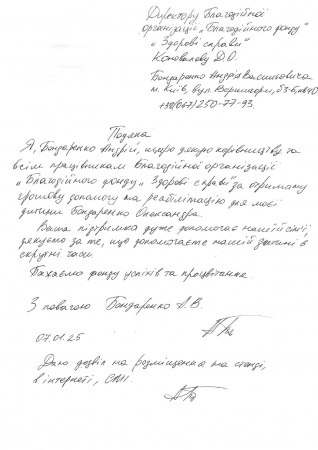 Директору Благодійної
організації „Благодійного фонду"
„Здорові справи"
Коновалову Д.О.
Бондаренко Андрія Васильовича
м. Київ, вул. Вершигори,
+38(067)250-77-93
Подяка
Я, Бондаренко Андрій, щиро дякую керівництву та
всім працівникам Благодійної організації
„Благодійного фонду „Здорові справи" за отриману
грошову допомогу на реабілітацію для моєї
дитини Бондаренко Олександра.
Ваша підтримка дуже допомагає нашій сім'ї,
дякуємо за те, що допомагаєте нашій дитині в
скрутні часи.
Бажаємо фонду успіхів та процвітання.
З повагою Бондаренко А.В.
07.01.25
Даю дозвіл на розміщення на стенді,
в інтернеті, СМІ.